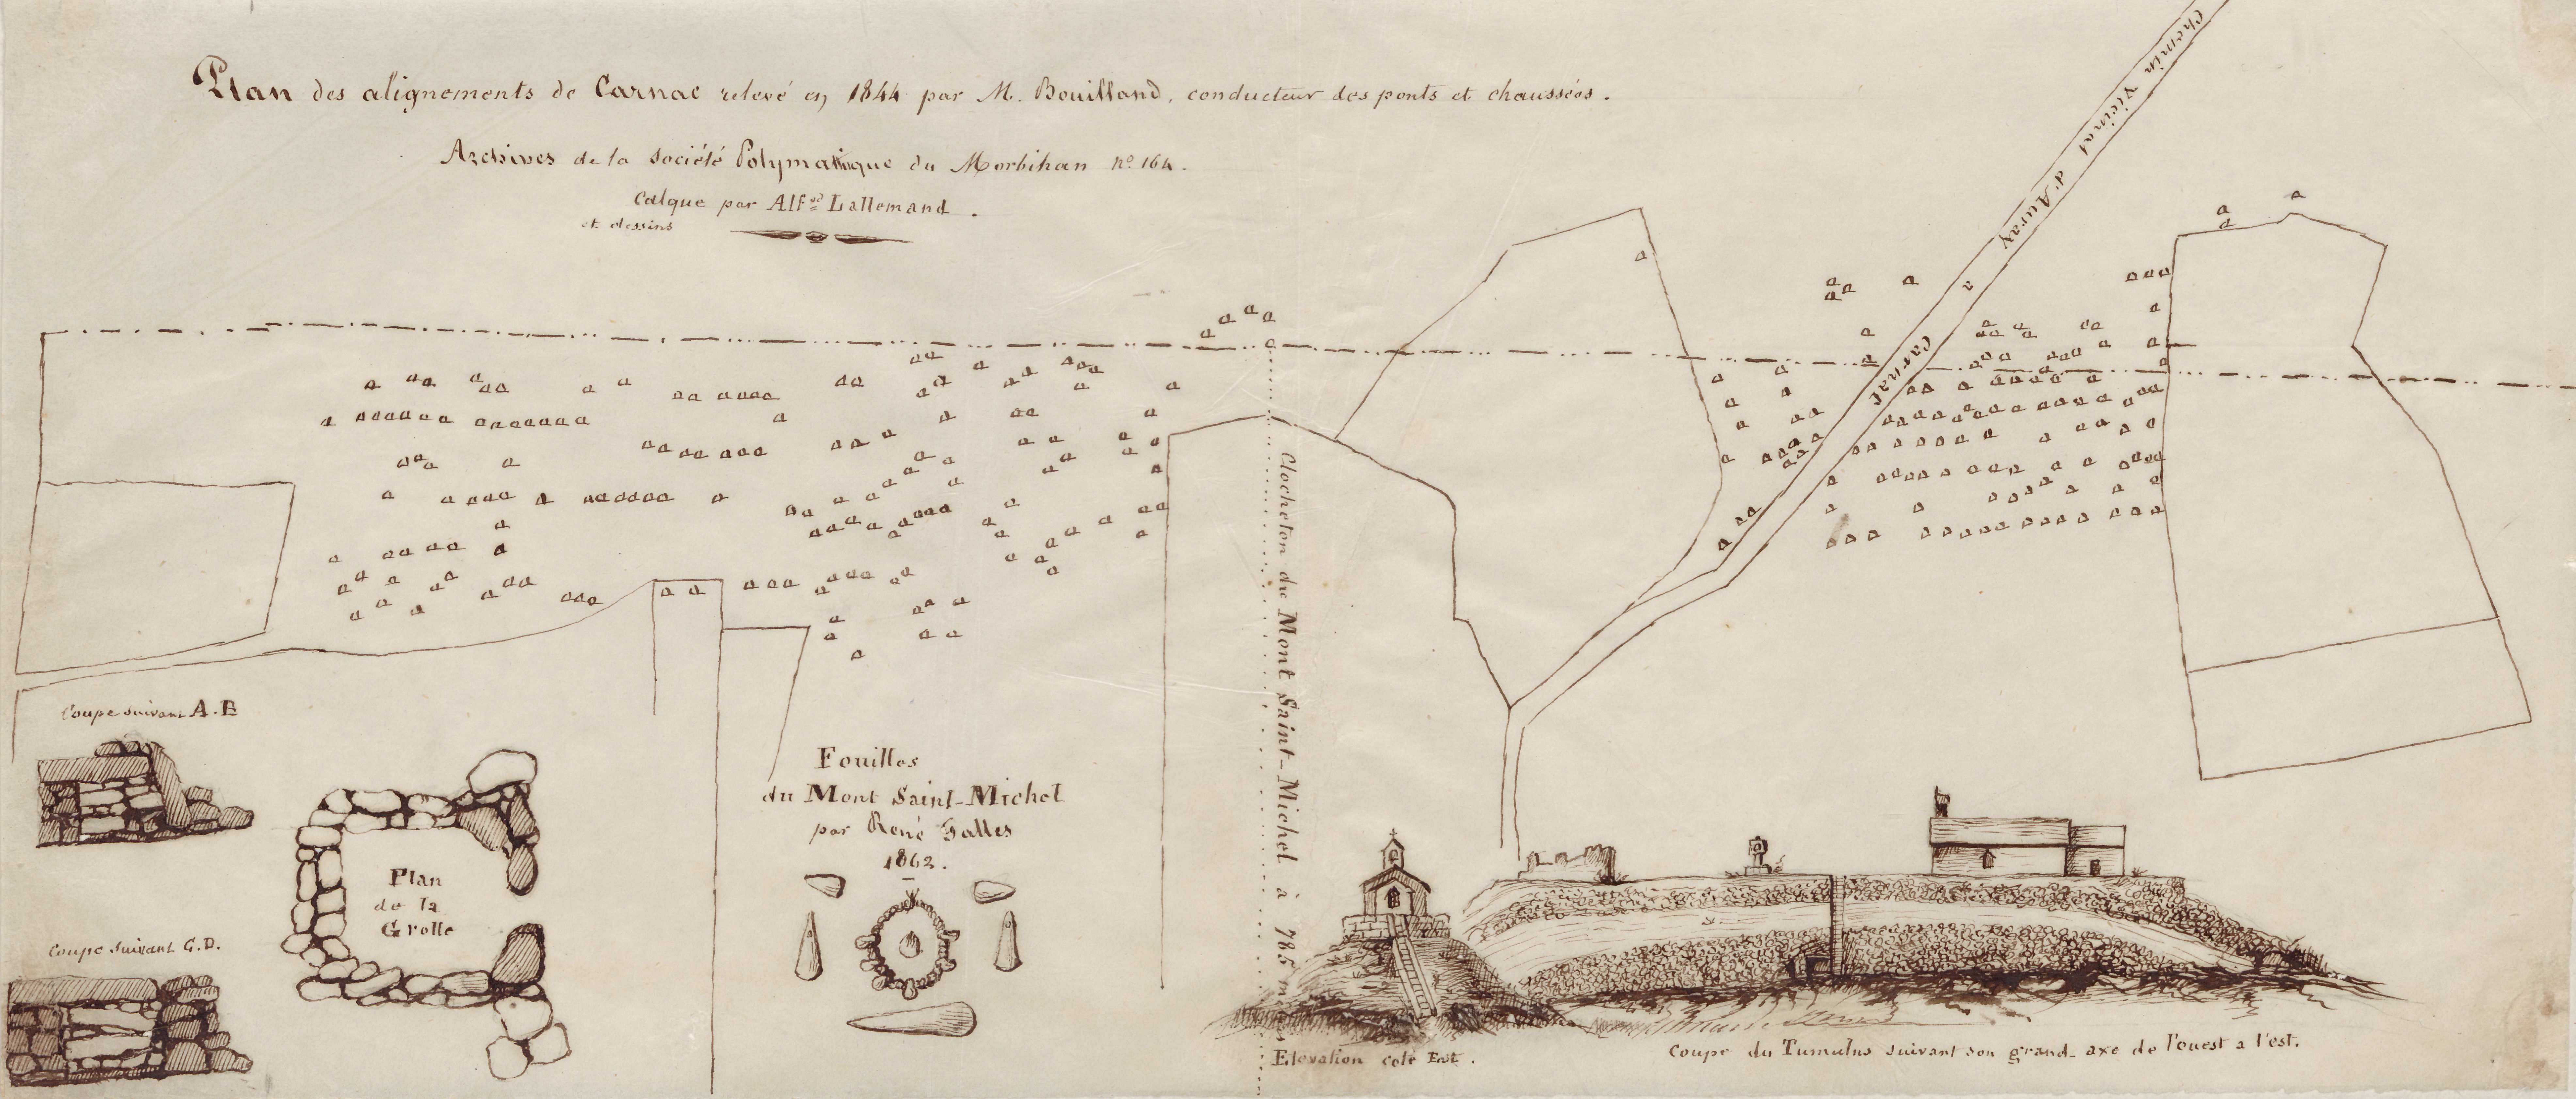 Plan des alignements de Carnac relevé en 1844 par M. Bouilland, conducteur des ponts et chaussées.
Archives de la Société Polymathique du Morbihan no. 164.
Calque par Alf.ed Lallemand.
et dessins
Chemin Vicinal d'Auray
Carnac
Clocheton du Mont Saint-Michel à 785 m
Coupe suivant A.B
Plan
de la
Grotte
Coupe suivant C.D.
Fouilles
du Mont Saint-Michel
par René Galles
1862.
Elevation coté Est.
Coupe du Tumulus suivant son grand axe de l'ouest a l'est.